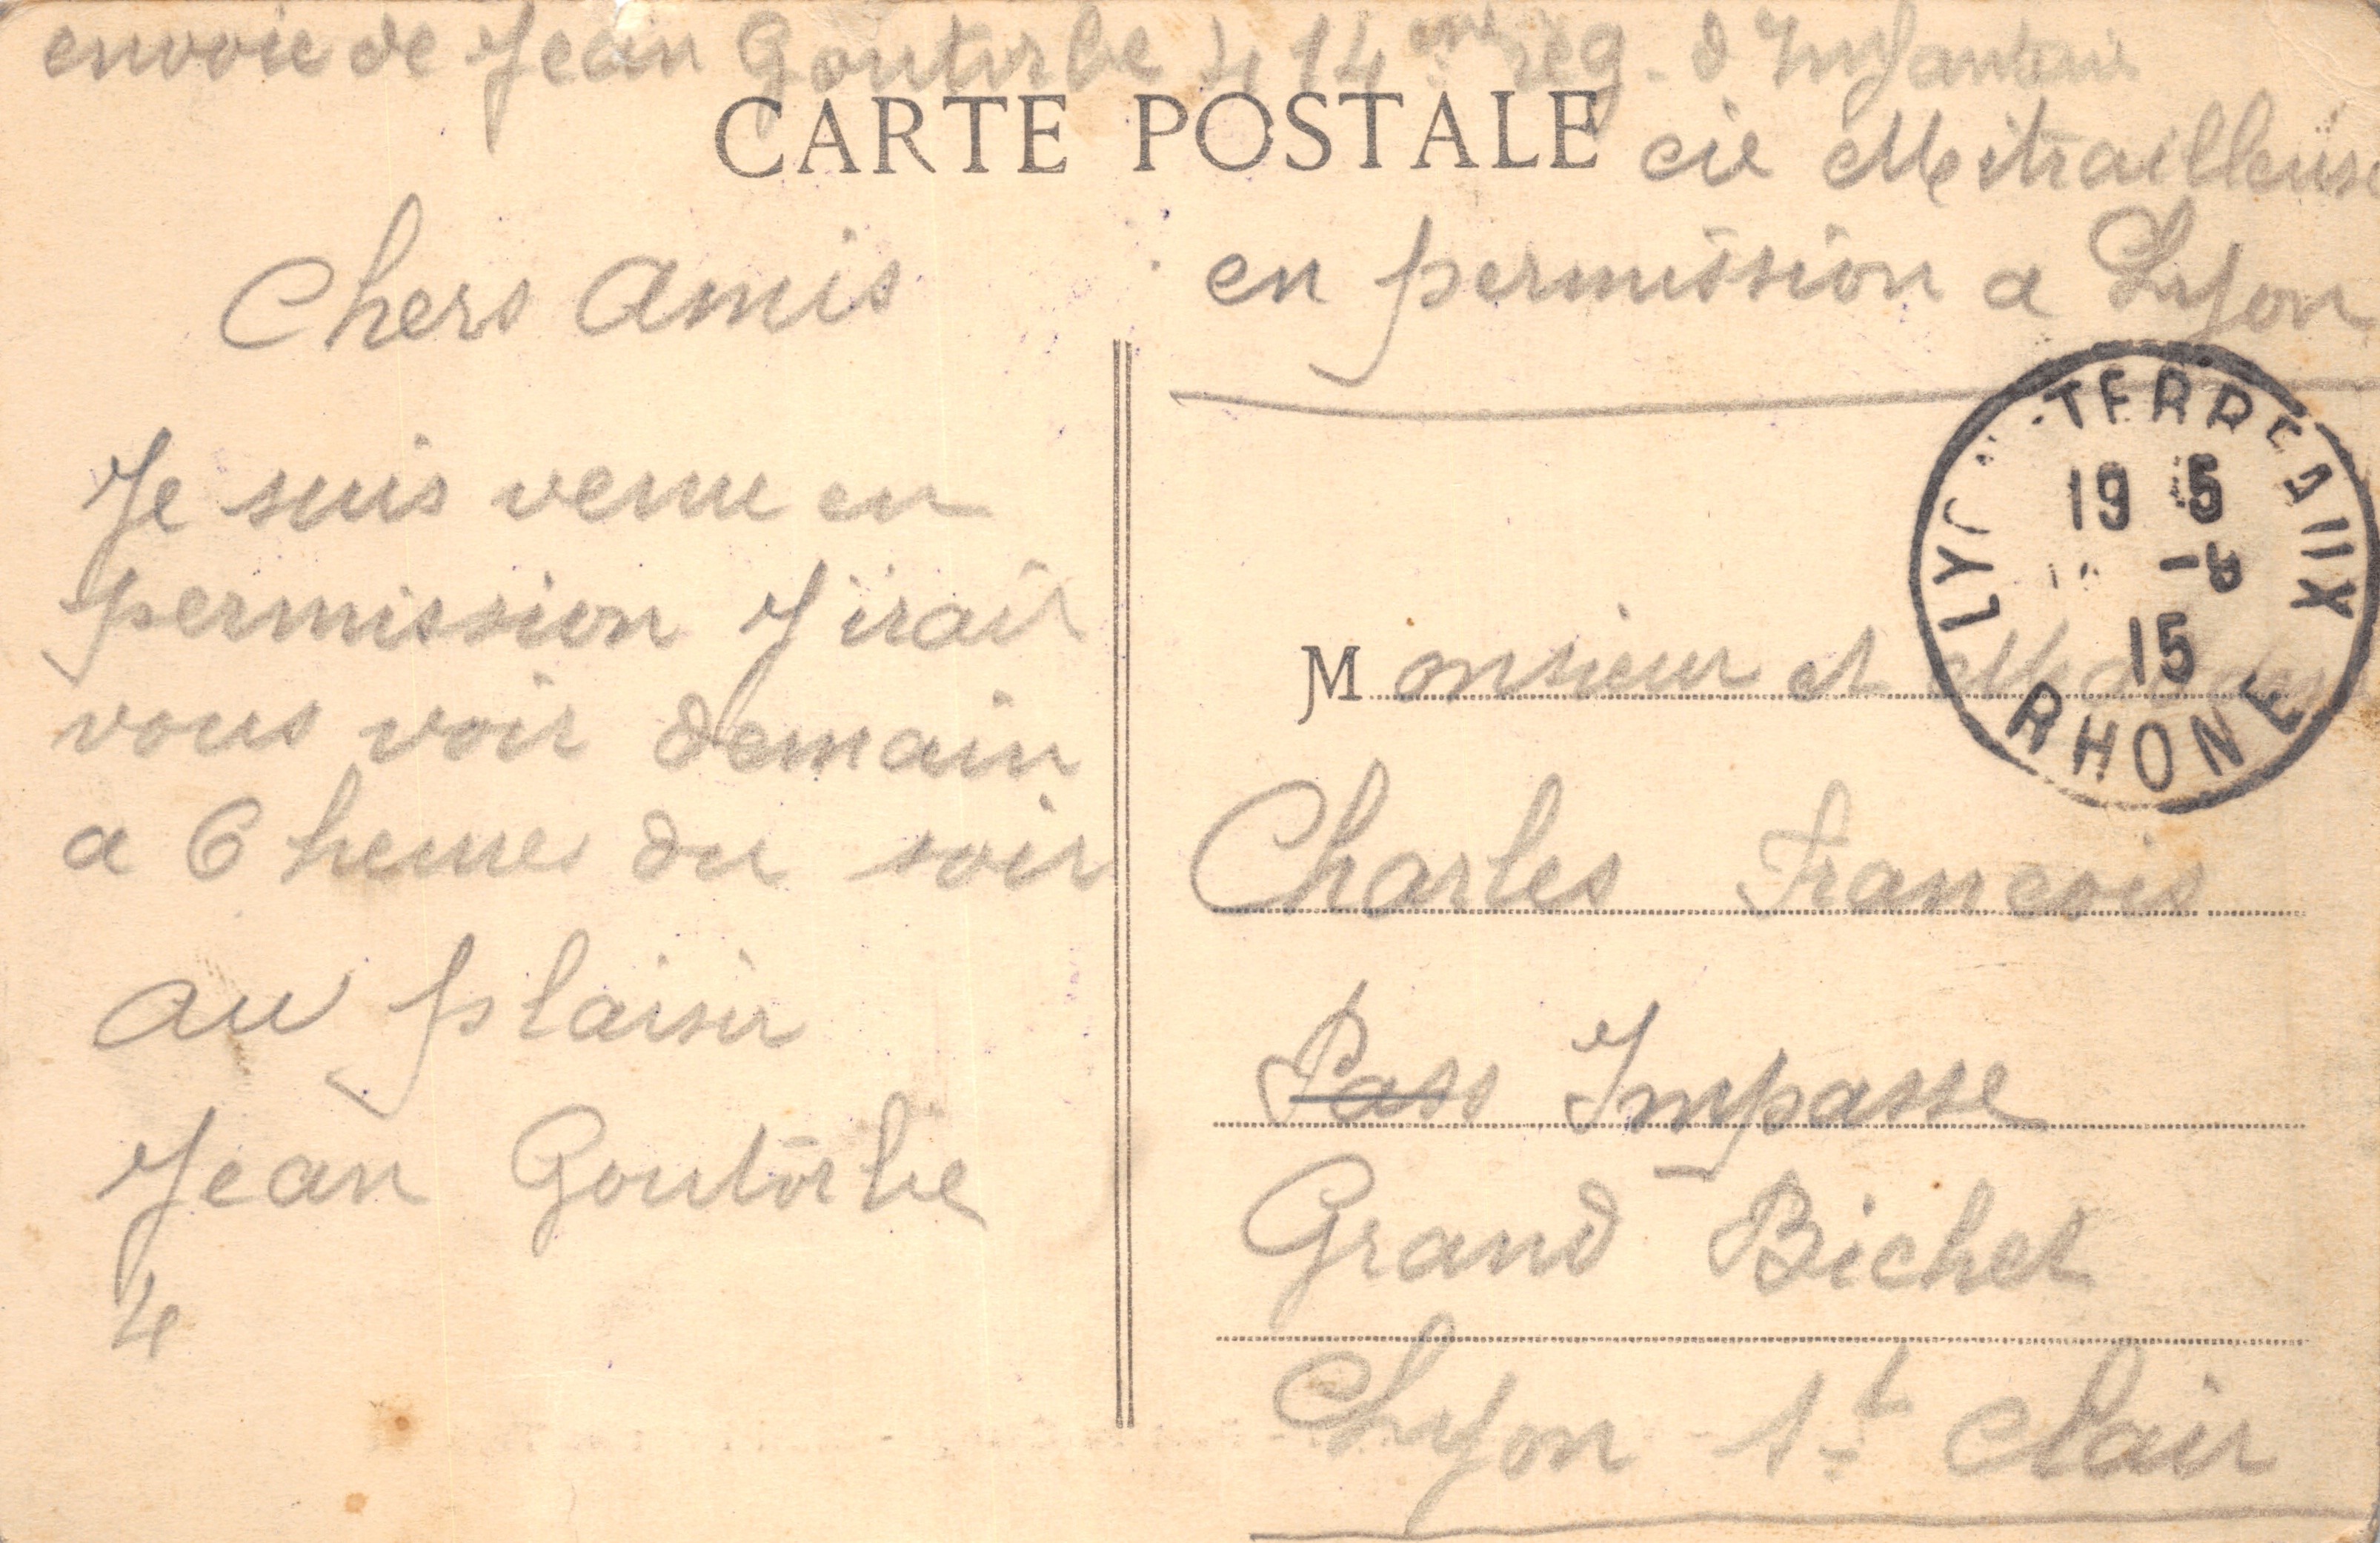 envoie de Jean Goutorbe 414eme reg. d Infanterie
CARTE POSTALE
cie Mitrailleuse
en permission a Lyon
Chers Amis
Je suis venu en
permission J'irait
vous voir demain
a 6 heures du soir
au plaisir
Jean Goutorbe
LYON-TERREAUX
19 5
15
RHONE
Monsieur et
Charles Francois
Pass Impasse
Grand Bichet
Lyon St Clair